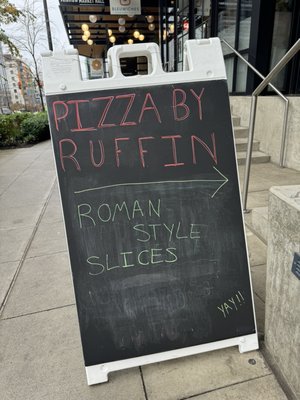 PIZZA BY
RUFFIN
ROMAN
STYLE
SLICES
YAY!!